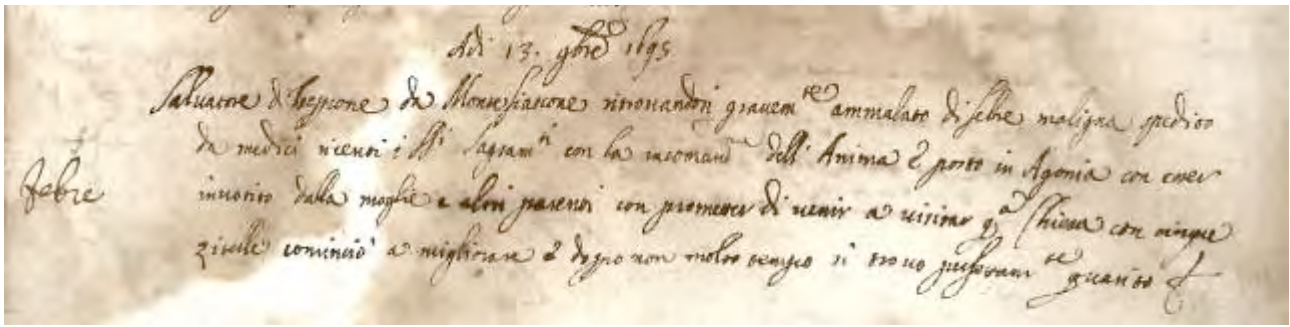 Adi 13. 9bre 1695
Salvatore di da Montefiascone ritrovandosi gravemte ammalato di febre maligna spedito
da medici ricevti i SSi Sagramti con la racomandne dell'Anima e posto in Agonia con esser
Febre
invotito dalla moglie e altri parenti con prometter di venir a visitar qta Chiesa con cinque
zitelle comincio a migliorare e doppo non molto tempo si trovo perfettamte guarito